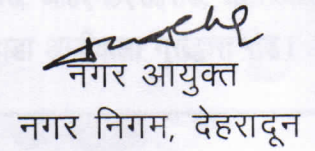 नगर आयुक्त
नगर निगम, देहरादून